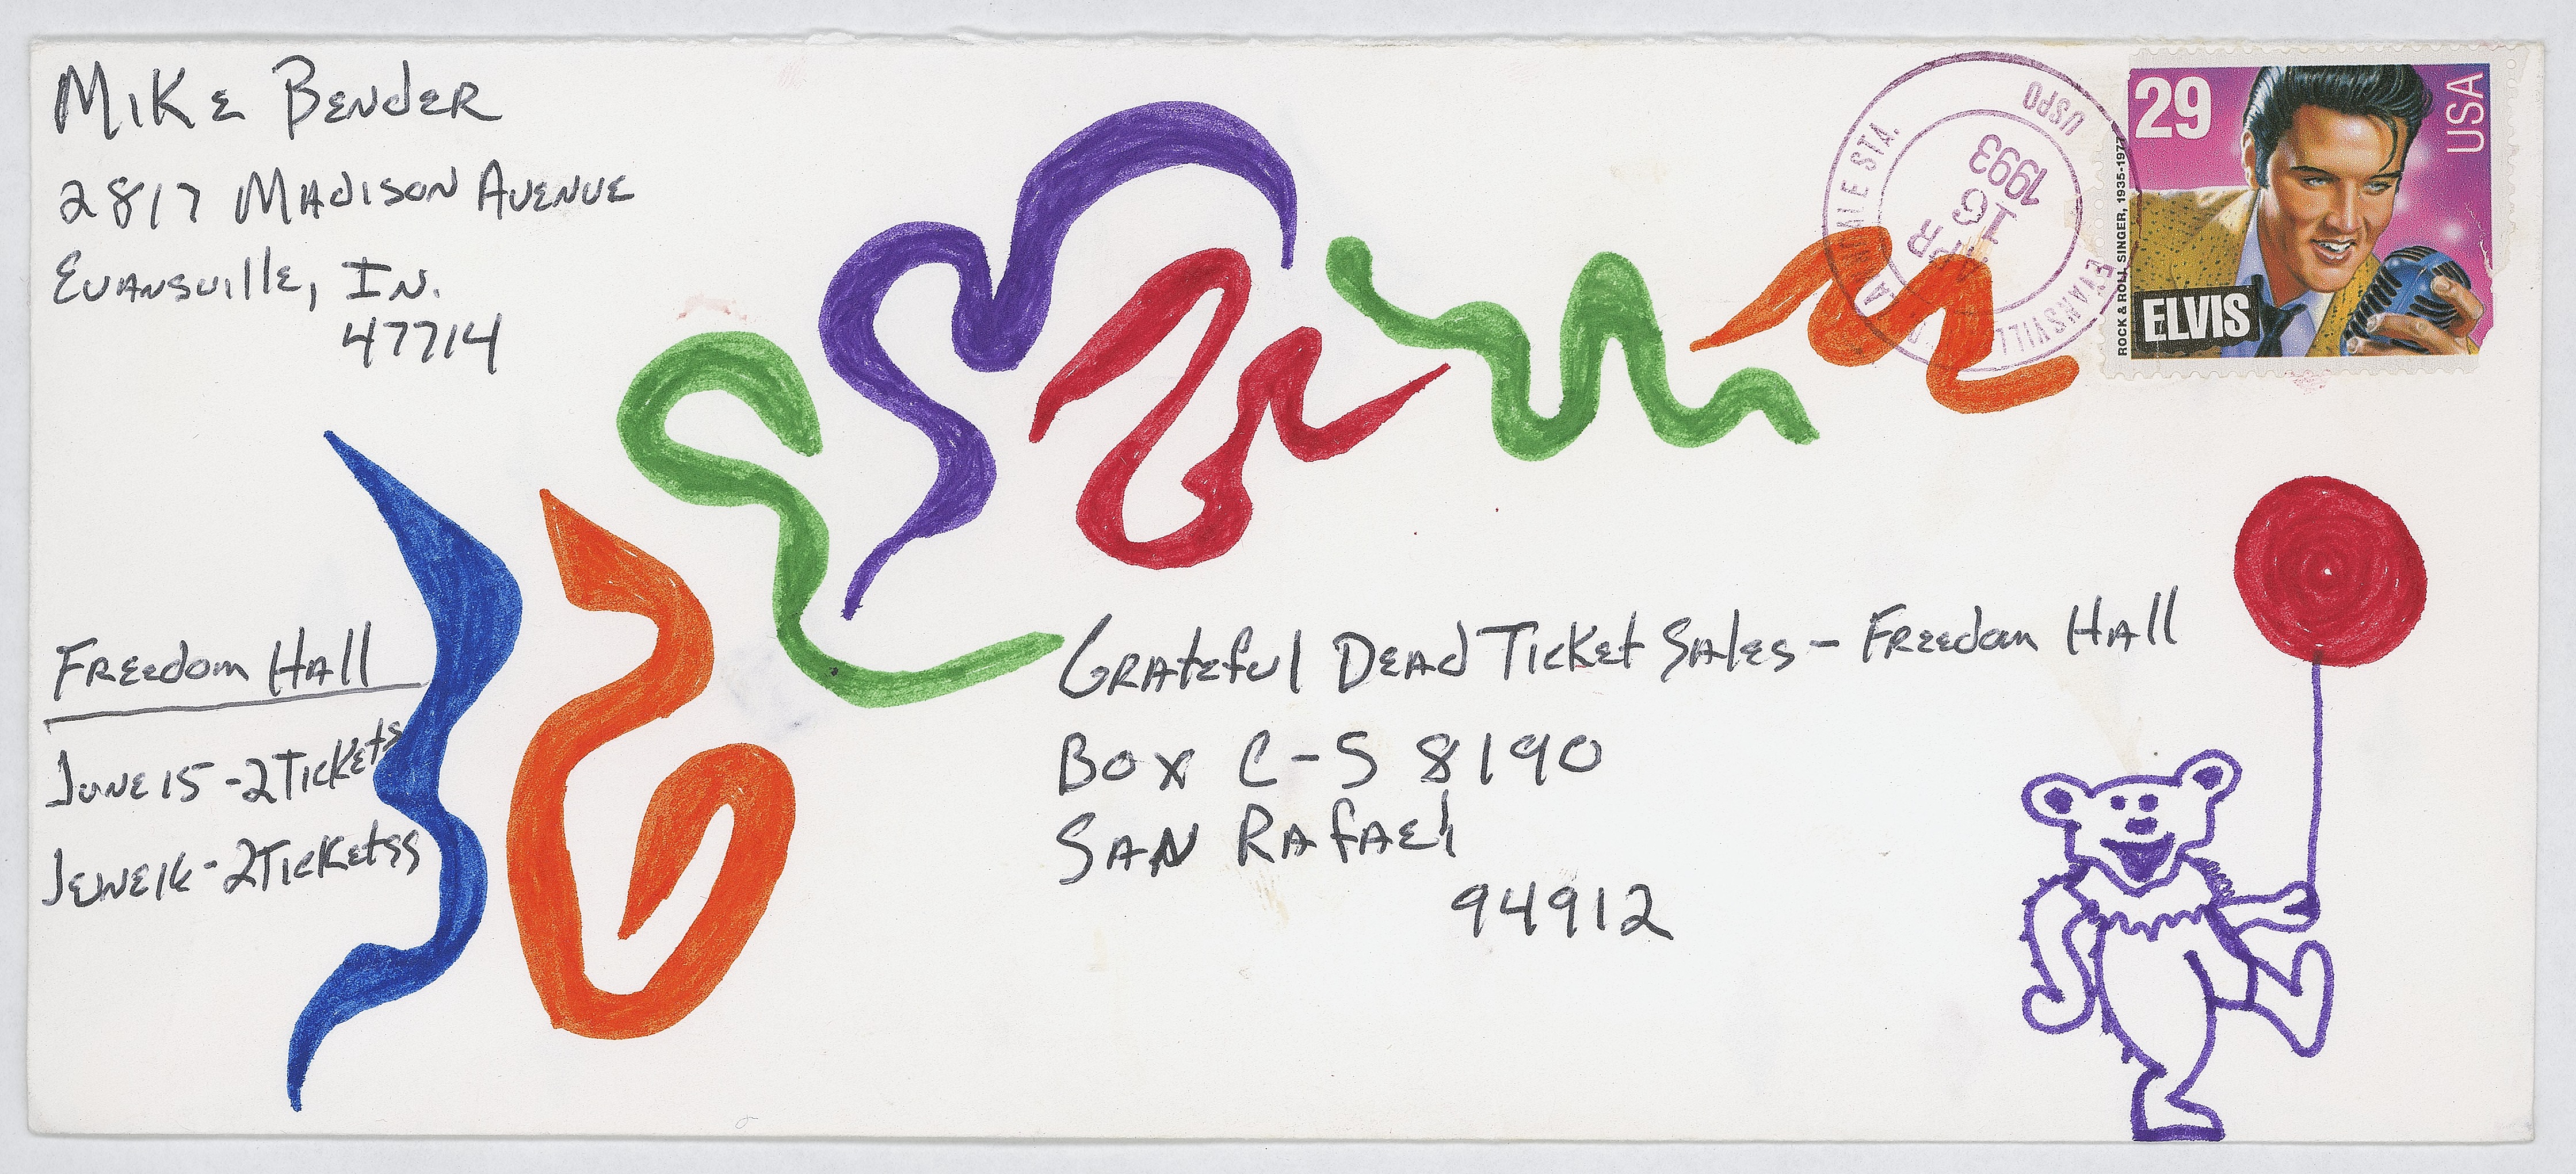 Mike Bender
2817 Madison Avenue
Evansville, In.
47714
USPO
EVANSVILL
ALE STA.
APR
16
1993
29
USA
ELVIS
ROCK & ROLL SINGER, 1935-1977
Freedom Hall
June 15 - 2 Tickets
June 16 - 2 Ticketss
Grateful Dead Ticket Sales - Freedom Hall
Box C-S 8190
San Rafael
94912